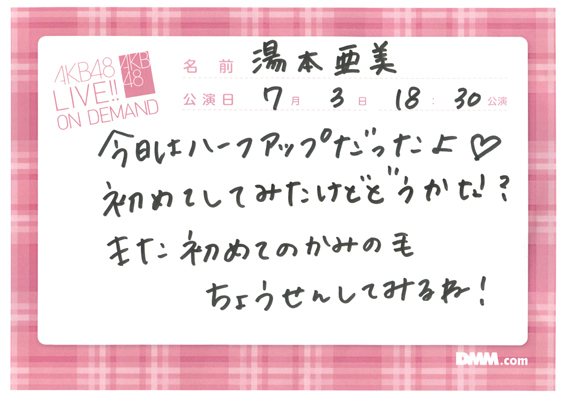 AKB48
LIVE!!
ON DEMAND
AKB
48
名前 湯本亜美
公演日 7月 3日 18:30公演
今日はハーフアップだったよ♡
初めてしてみたけどどうかな!?
また初めてのかみの毛
ちょうせんしてみるね!
DMM.com